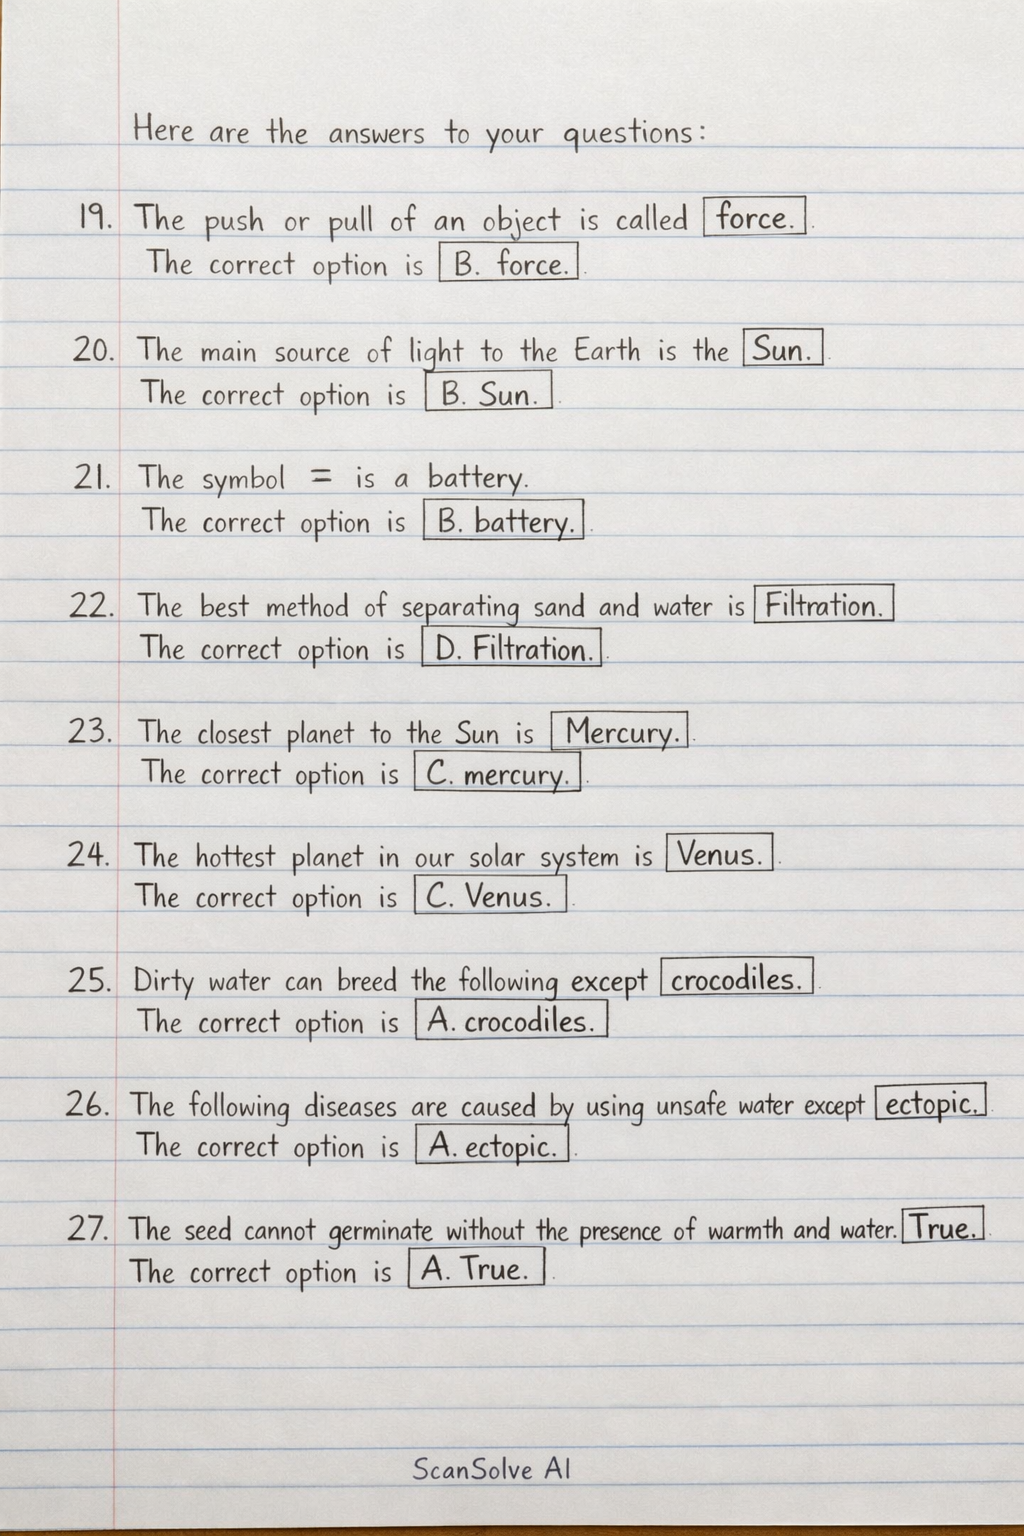 Here are the answers to your questions:
19. The push or pull of an object is called force..
The correct option is B. force..
20. The main source of light to the Earth is the Sun..
The correct option is B. Sun..
21. The symbol = is a battery.
The correct option is B. battery..
22. The best method of separating sand and water is Filtration.
The correct option is D. Filtration..
23. The closest planet to the Sun is Mercury..
The correct option is C. mercury..
24. The hottest planet in our solar system is Venus..
The correct option is C. Venus..
25. Dirty water can breed the following except crocodiles..
The correct option is A. crocodiles.
26. The following diseases are caused by using unsafe water except ectopic..
The correct option is A. ectopic..
27. The seed cannot germinate without the presence of warmth and water. True..
The correct option is A. True..
ScanSolve AI